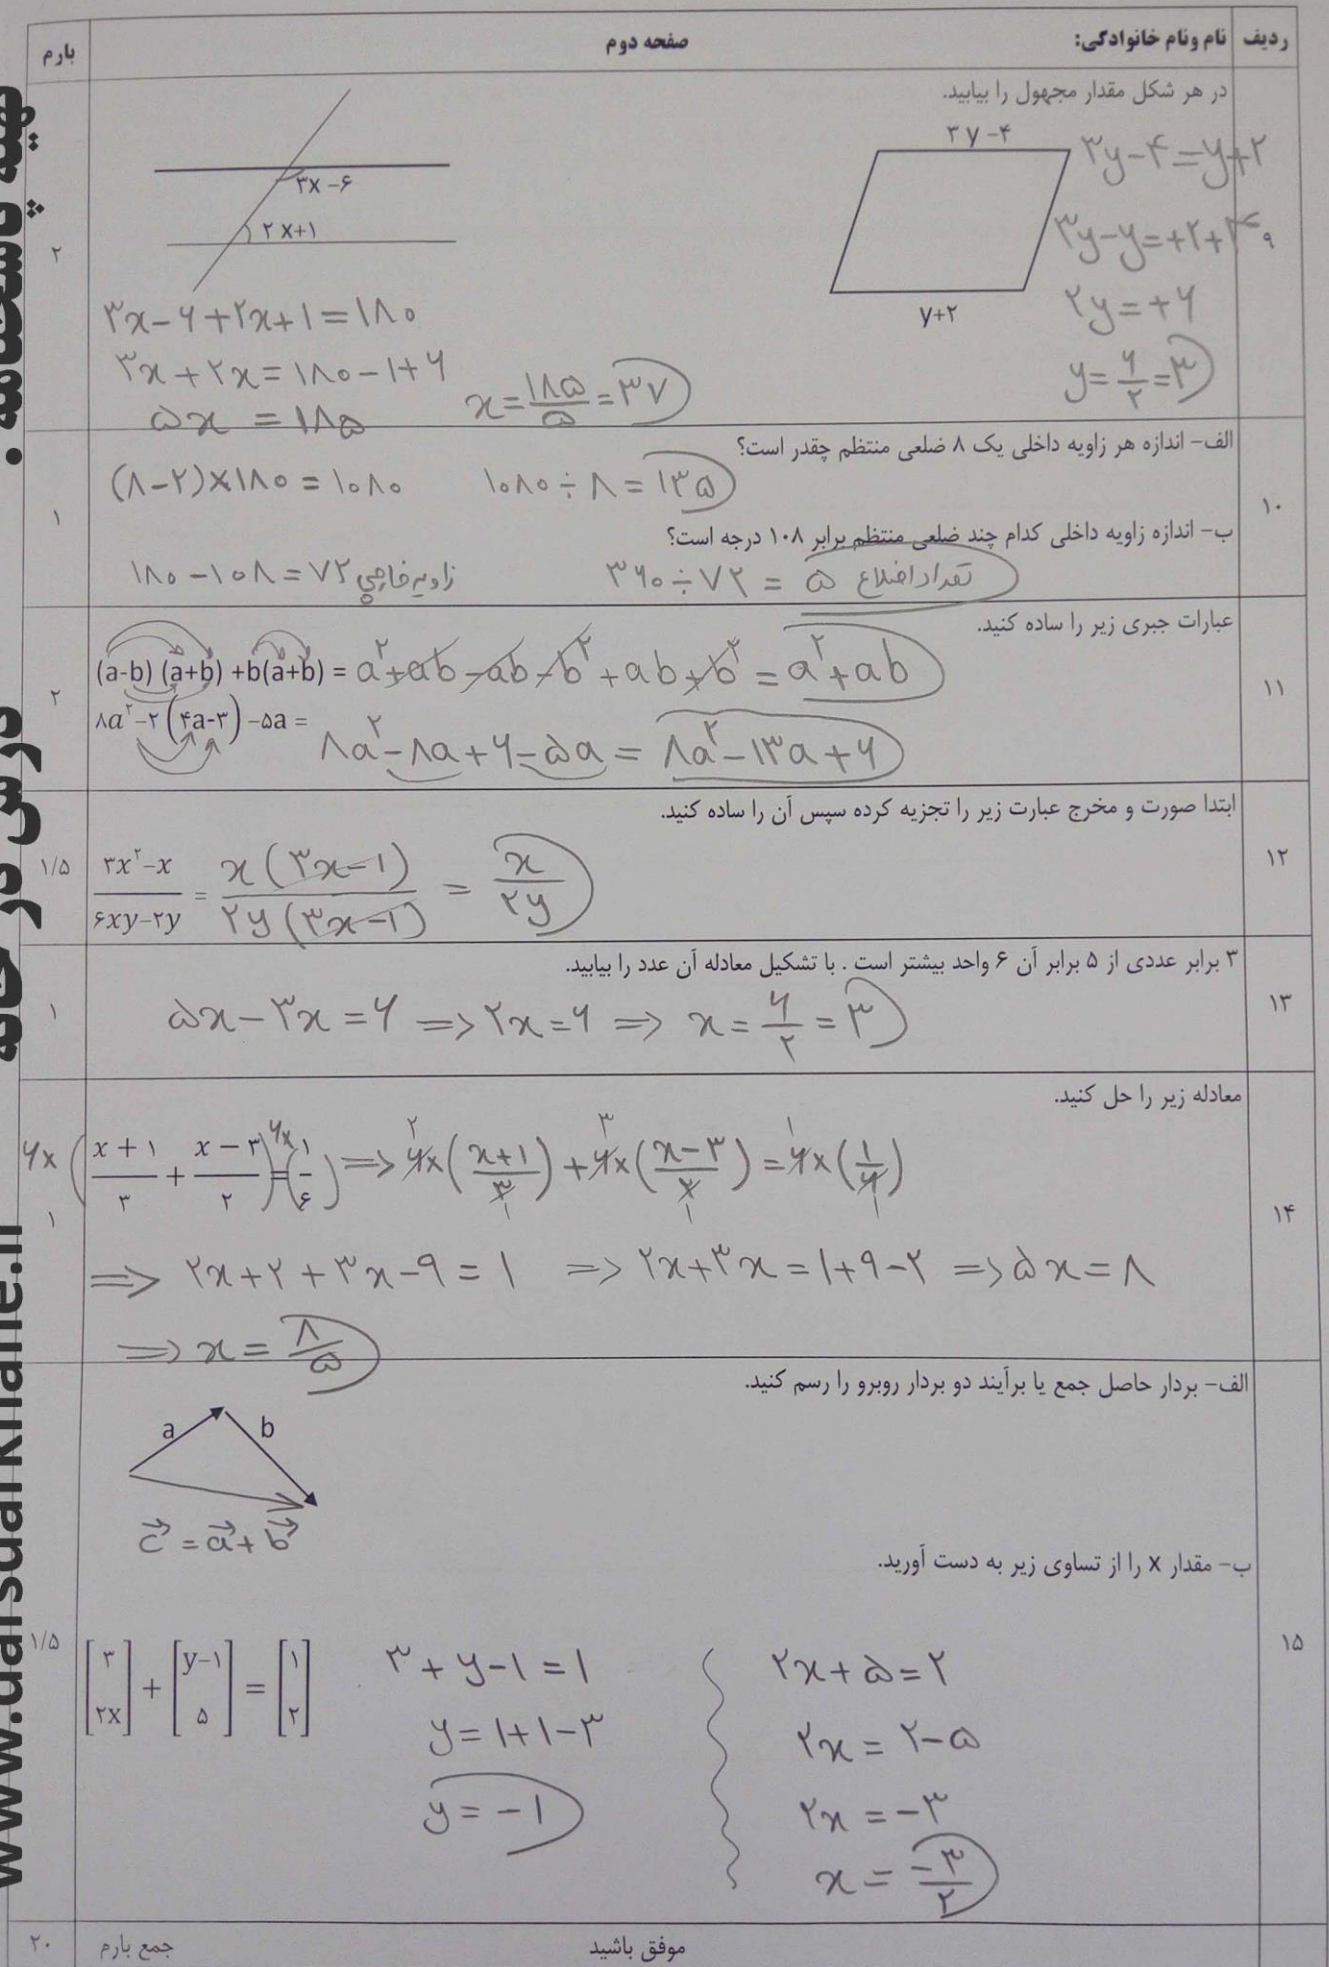 ردیف نام ونام خانوادگی: صفحه دوم بارم
در هر شکل مقدار مجهول را بیابید.
۳y-۴
y+۲
۳y-۴=y+۲
۳y-y=+۲+۴
۲y=+۶
y=۶/۲=۳
۹
۳x-۶
۲x+۱
۳x-۶+۲x+۱=۱۸۰
۳x+۲x=۱۸۰-۱+۶
۵x=۱۸۵
x=۱۸۵/۵=۳۷
۲
الف- اندازه هر زاویه داخلی یک ۸ ضلعی منتظم چقدر است؟
(۸-۲)×۱۸۰=۱۰۸۰ ۱۰۸۰÷۸=۱۳۵
۱۰
۱
ب- اندازه زاویه داخلی کدام چند ضلعی منتظم برابر ۱۰۸ درجه است؟
۱۸۰-۱۰۸=۷۲ زاویه خارجی ۳۶۰÷۷۲=۵ تعداد اضلاع
عبارات جبری زیر را ساده کنید.
(a-b)(a+b)+b(a+b)=a²+ab-ab-b²+ab+b²=a²+ab
۱۱
۲
۸a²-۲(۴a-۳)-۵a=۸a²-۸a+۶-۵a=۸a²-۱۳a+۶
ابتدا صورت و مخرج عبارت زیر را تجزیه کرده سپس آن را ساده کنید.
۱۲
۱/۵
۳x²-x/۶xy-۲y=x(۳x-۱)/۲y(۳x-۱)=x/۲y
۳ برابر عددی از ۵ برابر آن ۶ واحد بیشتر است . با تشکیل معادله آن عدد را بیابید.
۱۳
۱
۵x-۳x=۶ => ۲x=۶ => x=۶/۲=۳
معادله زیر را حل کنید.
۶×(x+۱/۳+x-۳/۲)=۶×(۱/۶) => ۶×(x+۱/۳)+۶×(x-۳/۲)=۶×(۱/۶)
۱۴
۱
=> ۲x+۲+۳x-۹=۱ => ۲x+۳x=۱+۹-۲ => ۵x=۸
=> x=۸/۵
الف- بردار حاصل جمع یا برآیند دو بردار روبرو را رسم کنید.
a b
c⃗=a⃗+b⃗
ب- مقدار x را از تساوی زیر به دست آورید.
۱۵
۱/۵
[۳ ۲x]+[y-۱ ۵]=[۱ ۲]
۳+y-۱=۱
y=۱+۱-۳
y=-۱
۲x+۵=۲
۲x=۲-۵
۲x=-۳
x=-۳/۲
موفق باشید جمع بارم ۲۰
www.darsdarkhane.ir